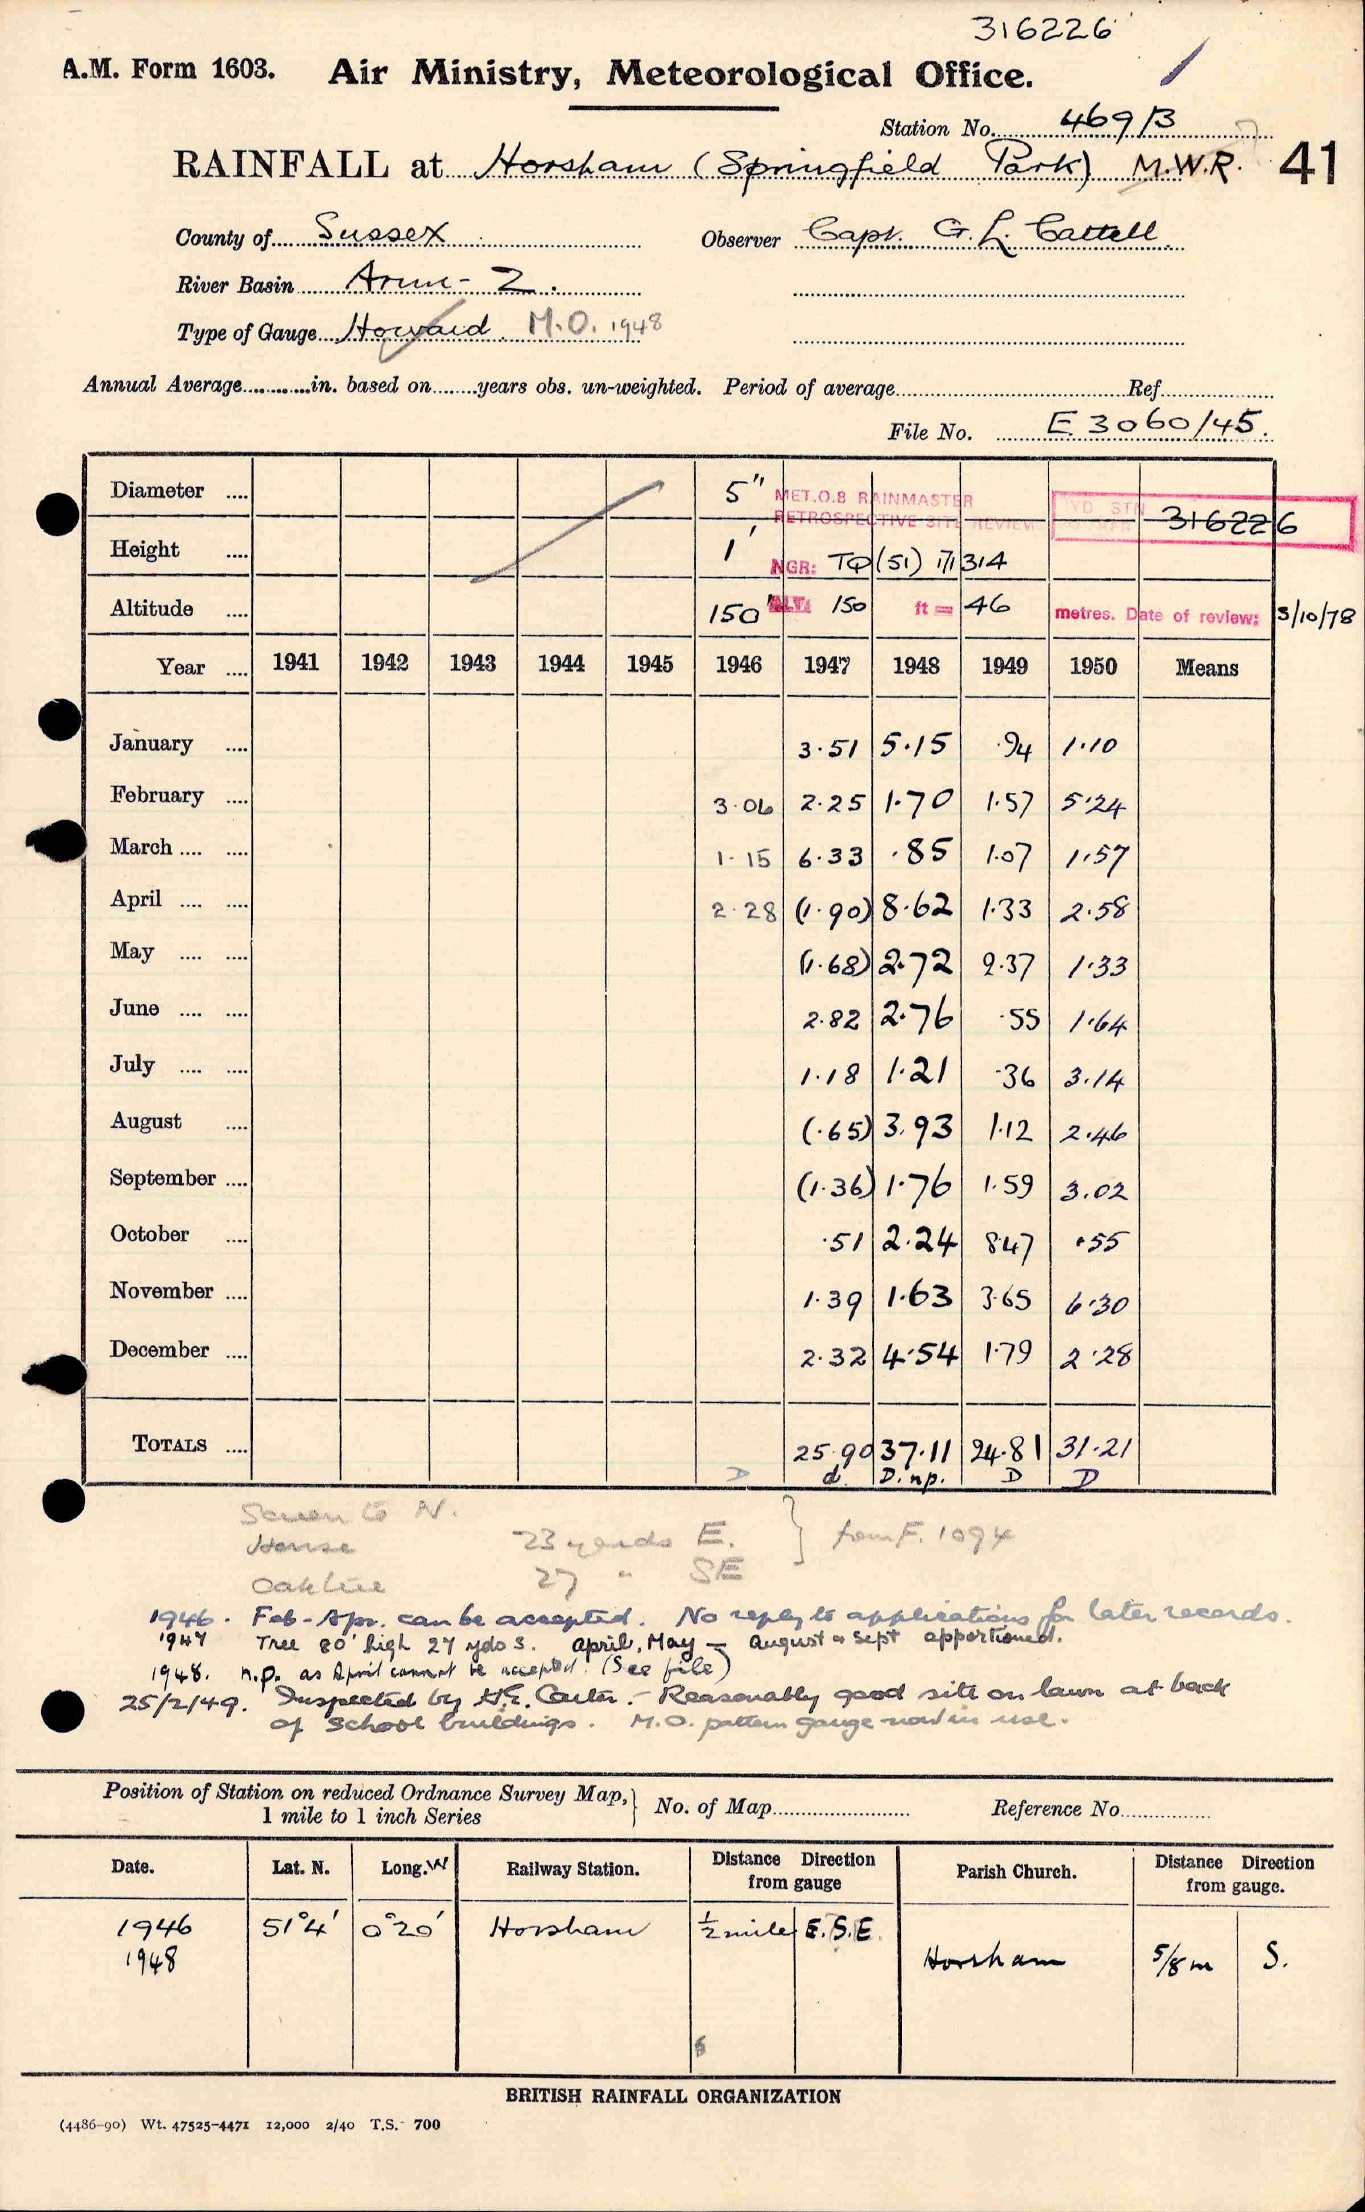 316226
A.M. Form 1603. Air Ministry, Meteorological Office.
Station No. 469/3
RAINFALL at Horsham (Springfield Park) M.W.R. 41
County of Sussex Observer Capt. G. L. Cattell.
River Basin Arun - Z.
Type of Gauge Howard. M.O. 1948
Annual Average............in. based on.......years obs. un-weighted. Period of average Ref
File No. E 3060/45.
Diameter .... 5" MET.O.8 RAINMASTER
RETROSPECTIVE SITE REVIEW 316226
Height .... 1' NGR: TQ (51) 171314
Altitude .... 150' ALT: 150 ft = 46 metres. Date of review: 3/10/78
Year .... 1941 1942 1943 1944 1945 1946 1947 1948 1949 1950 Means
January .... 3.51 5.15 .94 1.10
February .... 3.06 2.25 1.70 1.57 5.24
March .... .... 1.15 6.33 .85 1.07 1.57
April .... .... 2.28 (1.90) 8.62 1.33 2.58
May .... .... (1.68) 2.72 2.37 1.33
June .... .... 2.82 2.76 .55 1.64
July .... .... 1.18 1.21 .36 3.14
August .... (.65) 3.93 1.12 2.46
September .... (1.36) 1.76 1.59 3.02
October .... .51 2.24 8.47 .55
November .... 1.39 1.63 3.65 6.30
December .... 2.32 4.54 1.79 2.28
TOTALS .... 25.90 37.11 24.81 31.21
D d. D. np. D D
Screen to N.
House 23 yards E. } from F. 1094
Oaktree 27 " SE
1946. Feb-Apr. can be accepted. No reply to applications for later records.
1947 Tree 80' high 27 yds S. April, May - August & Sept apportioned.
1948. n.p. as April cannot be accepted. (See file)
25/2/49. Inspected by H.E. Carter. - Reasonably good site on lawn at back
of school buildings. M.O. pattern gauge now in use.
Position of Station on reduced Ordnance Survey Map, } No. of Map Reference No.
1 mile to 1 inch Series
Date. Lat. N. Long. W Railway Station. Distance Direction from gauge Parish Church. Distance Direction from gauge.
1946 51°4' 0°20' Horsham ½ mile E.S.E.
1948 Horsham 5/8 m S.
BRITISH RAINFALL ORGANIZATION
(4486-90) Wt. 47525-4471 12,000 2/40 T.S. 700